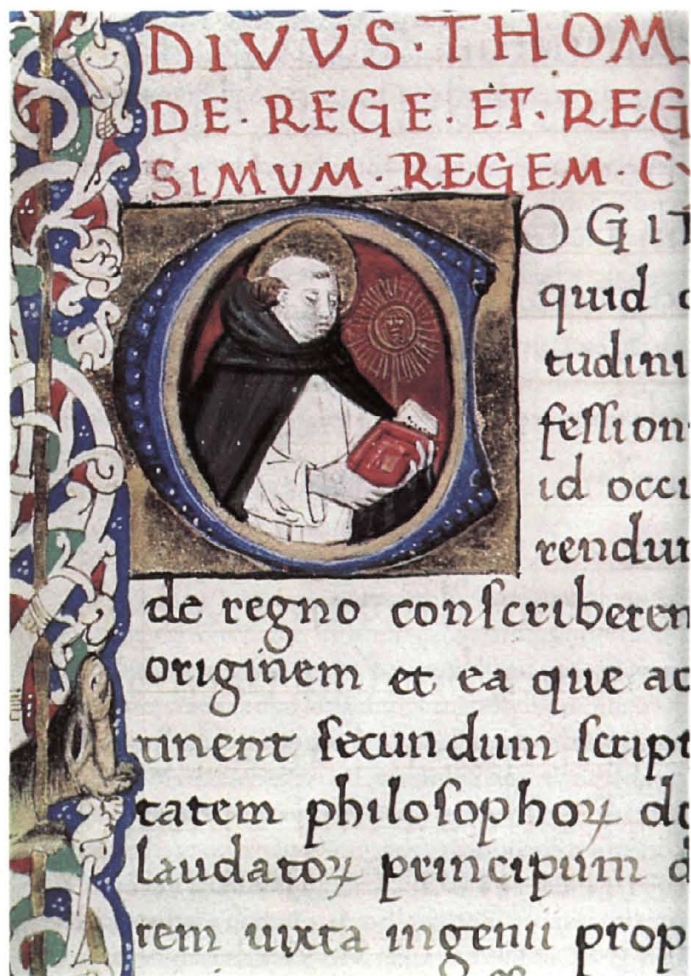 DIVVS·THOM
DE·REGE·ET·REG
SIMVM·REGEM·CY
COGIT
quid c
tudini
feſſion
id occi
rendum
de regno conſcriberen
originem et ea que ad
tinent ſecundum ſcript
tatem philoſophoꝝ do
laudatoꝝ principum d
rem iuxta ingenii prop